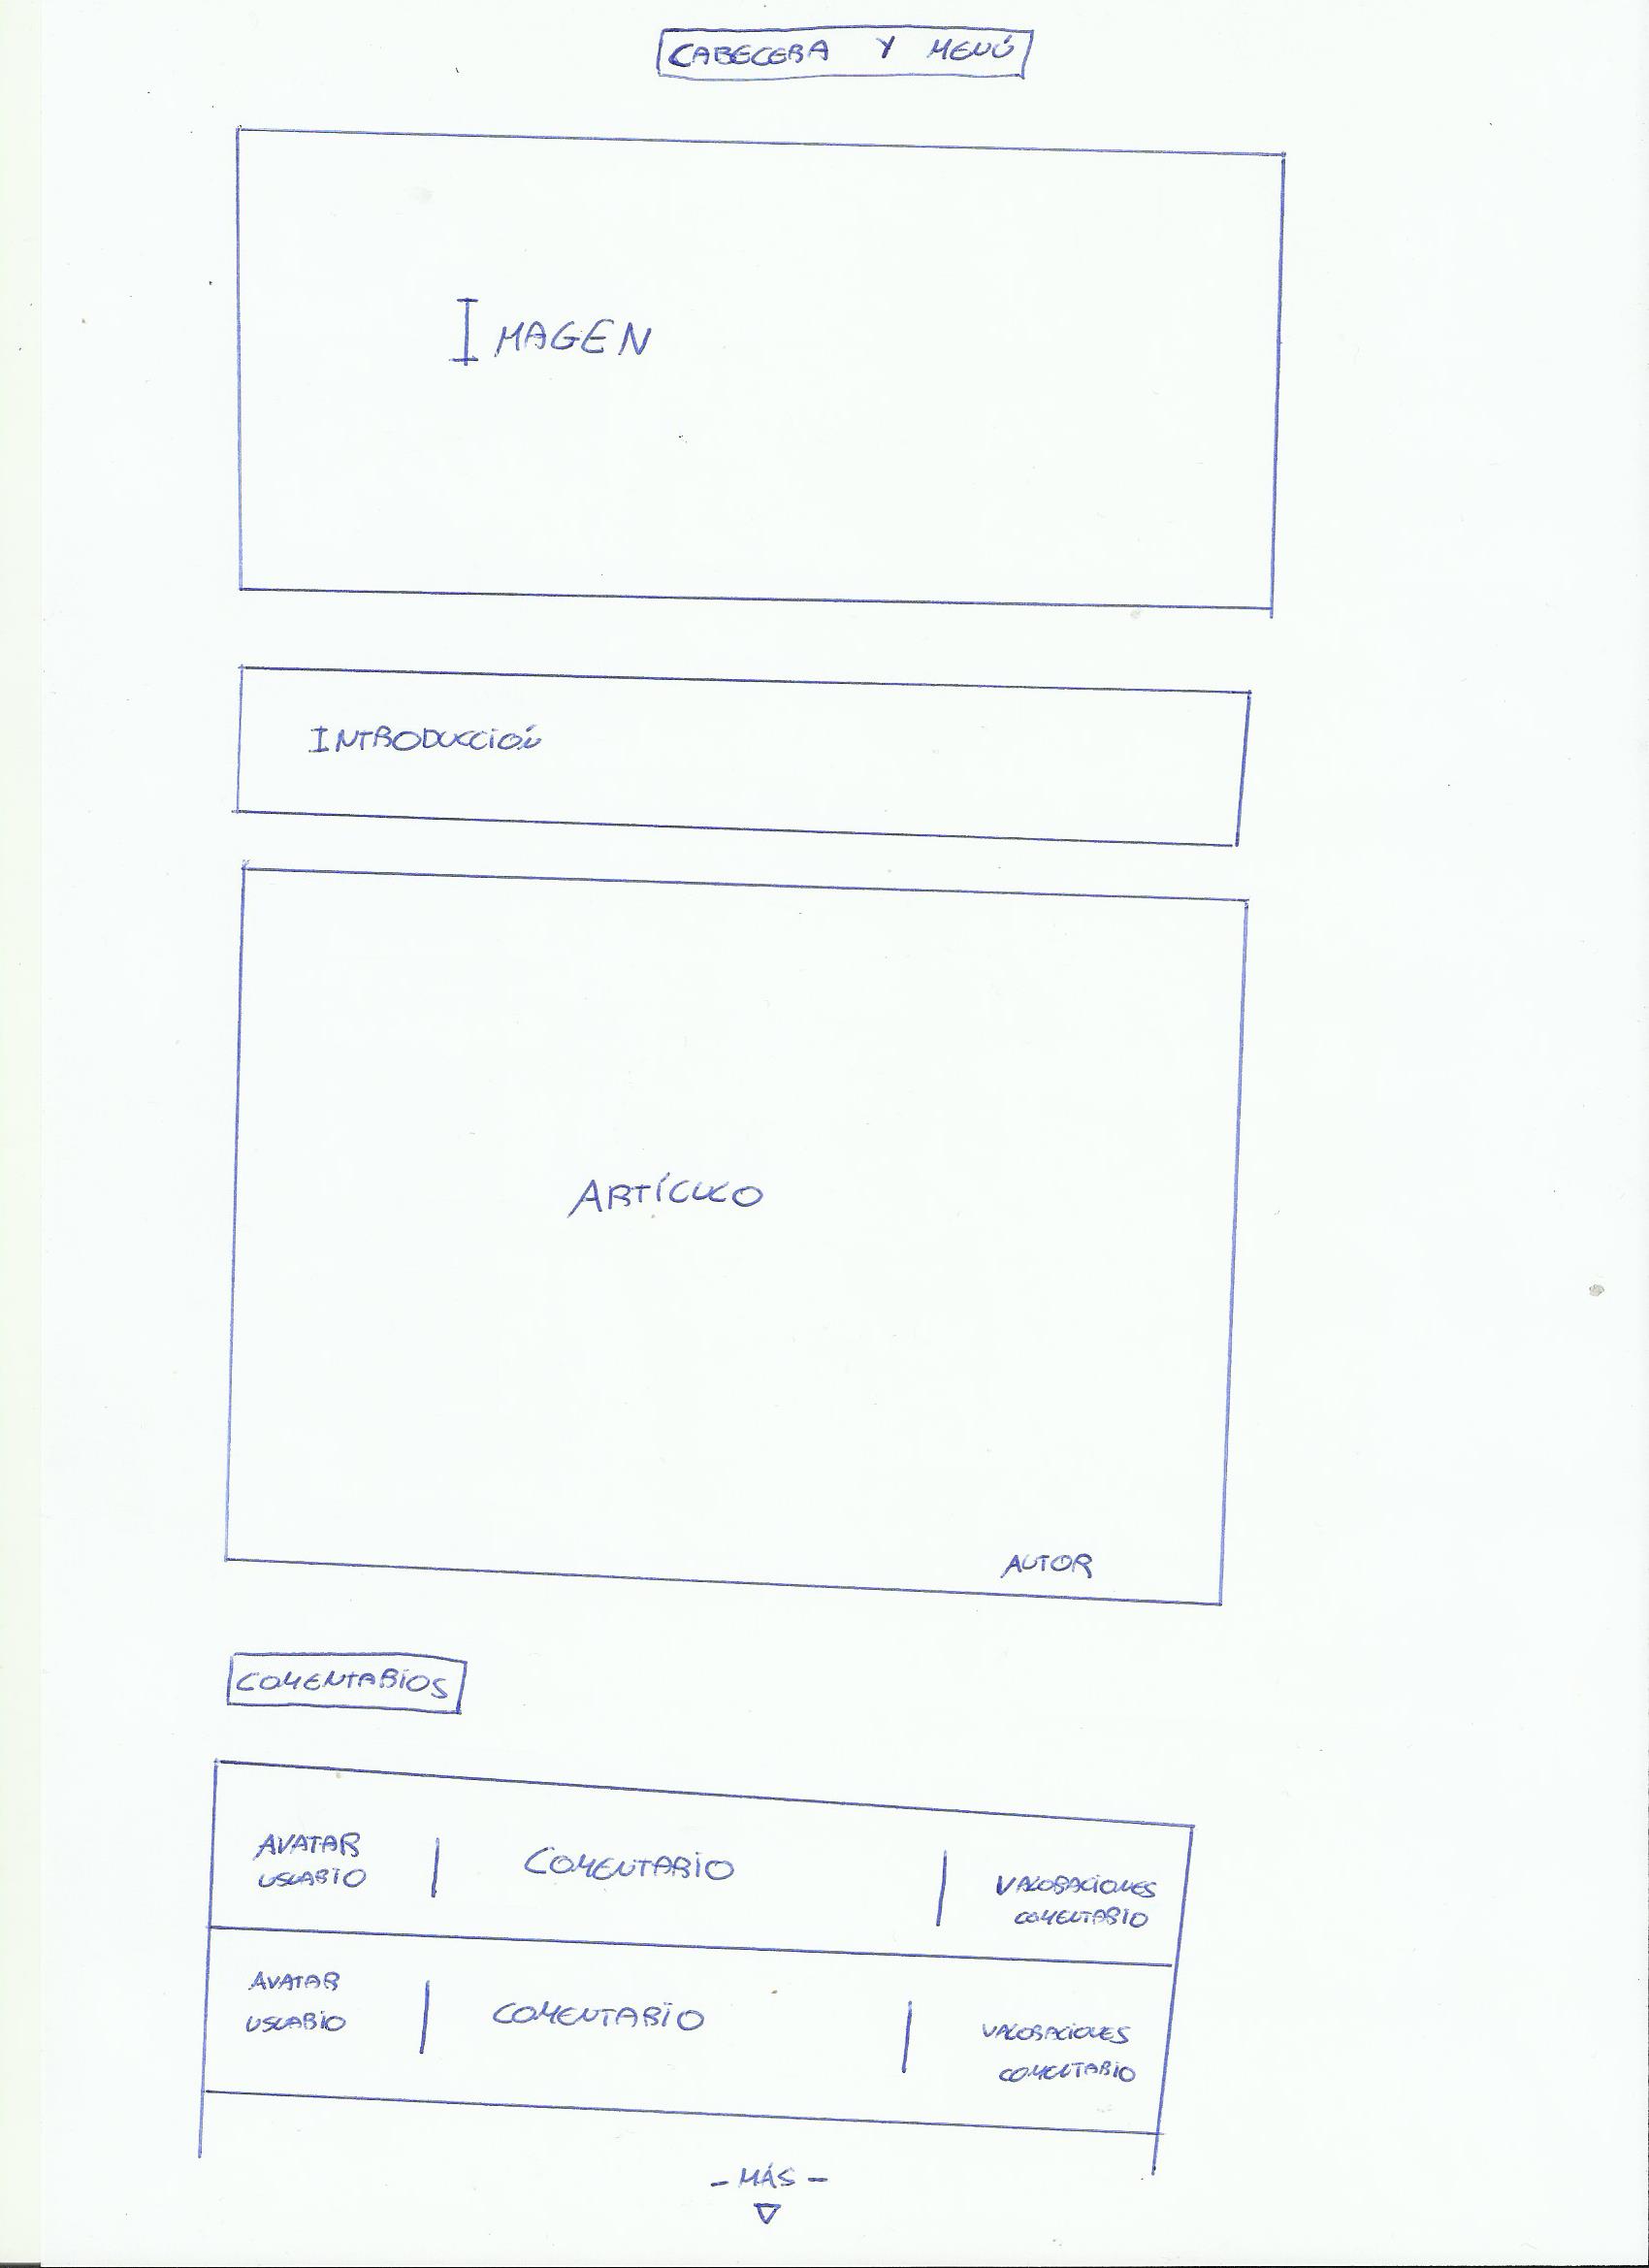 CABECERA Y MENÚ
IMAGEN
INTRODUCCIÓN
ARTÍCULO
AUTOR
COMENTARIOS
AVATAR
USUARIO
COMENTARIO
VALORACIONES
COMENTARIO
AVATAR
USUARIO
COMENTARIO
VALORACIONES
COMENTARIO
- MÁS -